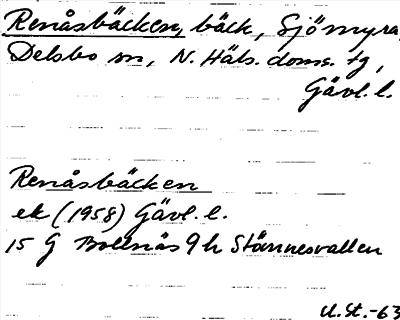 Renåsbäcken, bäck, Sjömyra,
Delsbo sn, N. Häls. doms. tg,
Gävl. l.
Renåsbäcken
ek (1958) Gävl. l.
15 G Bollnäs 9 h Stömnesvallen
U.St.-63